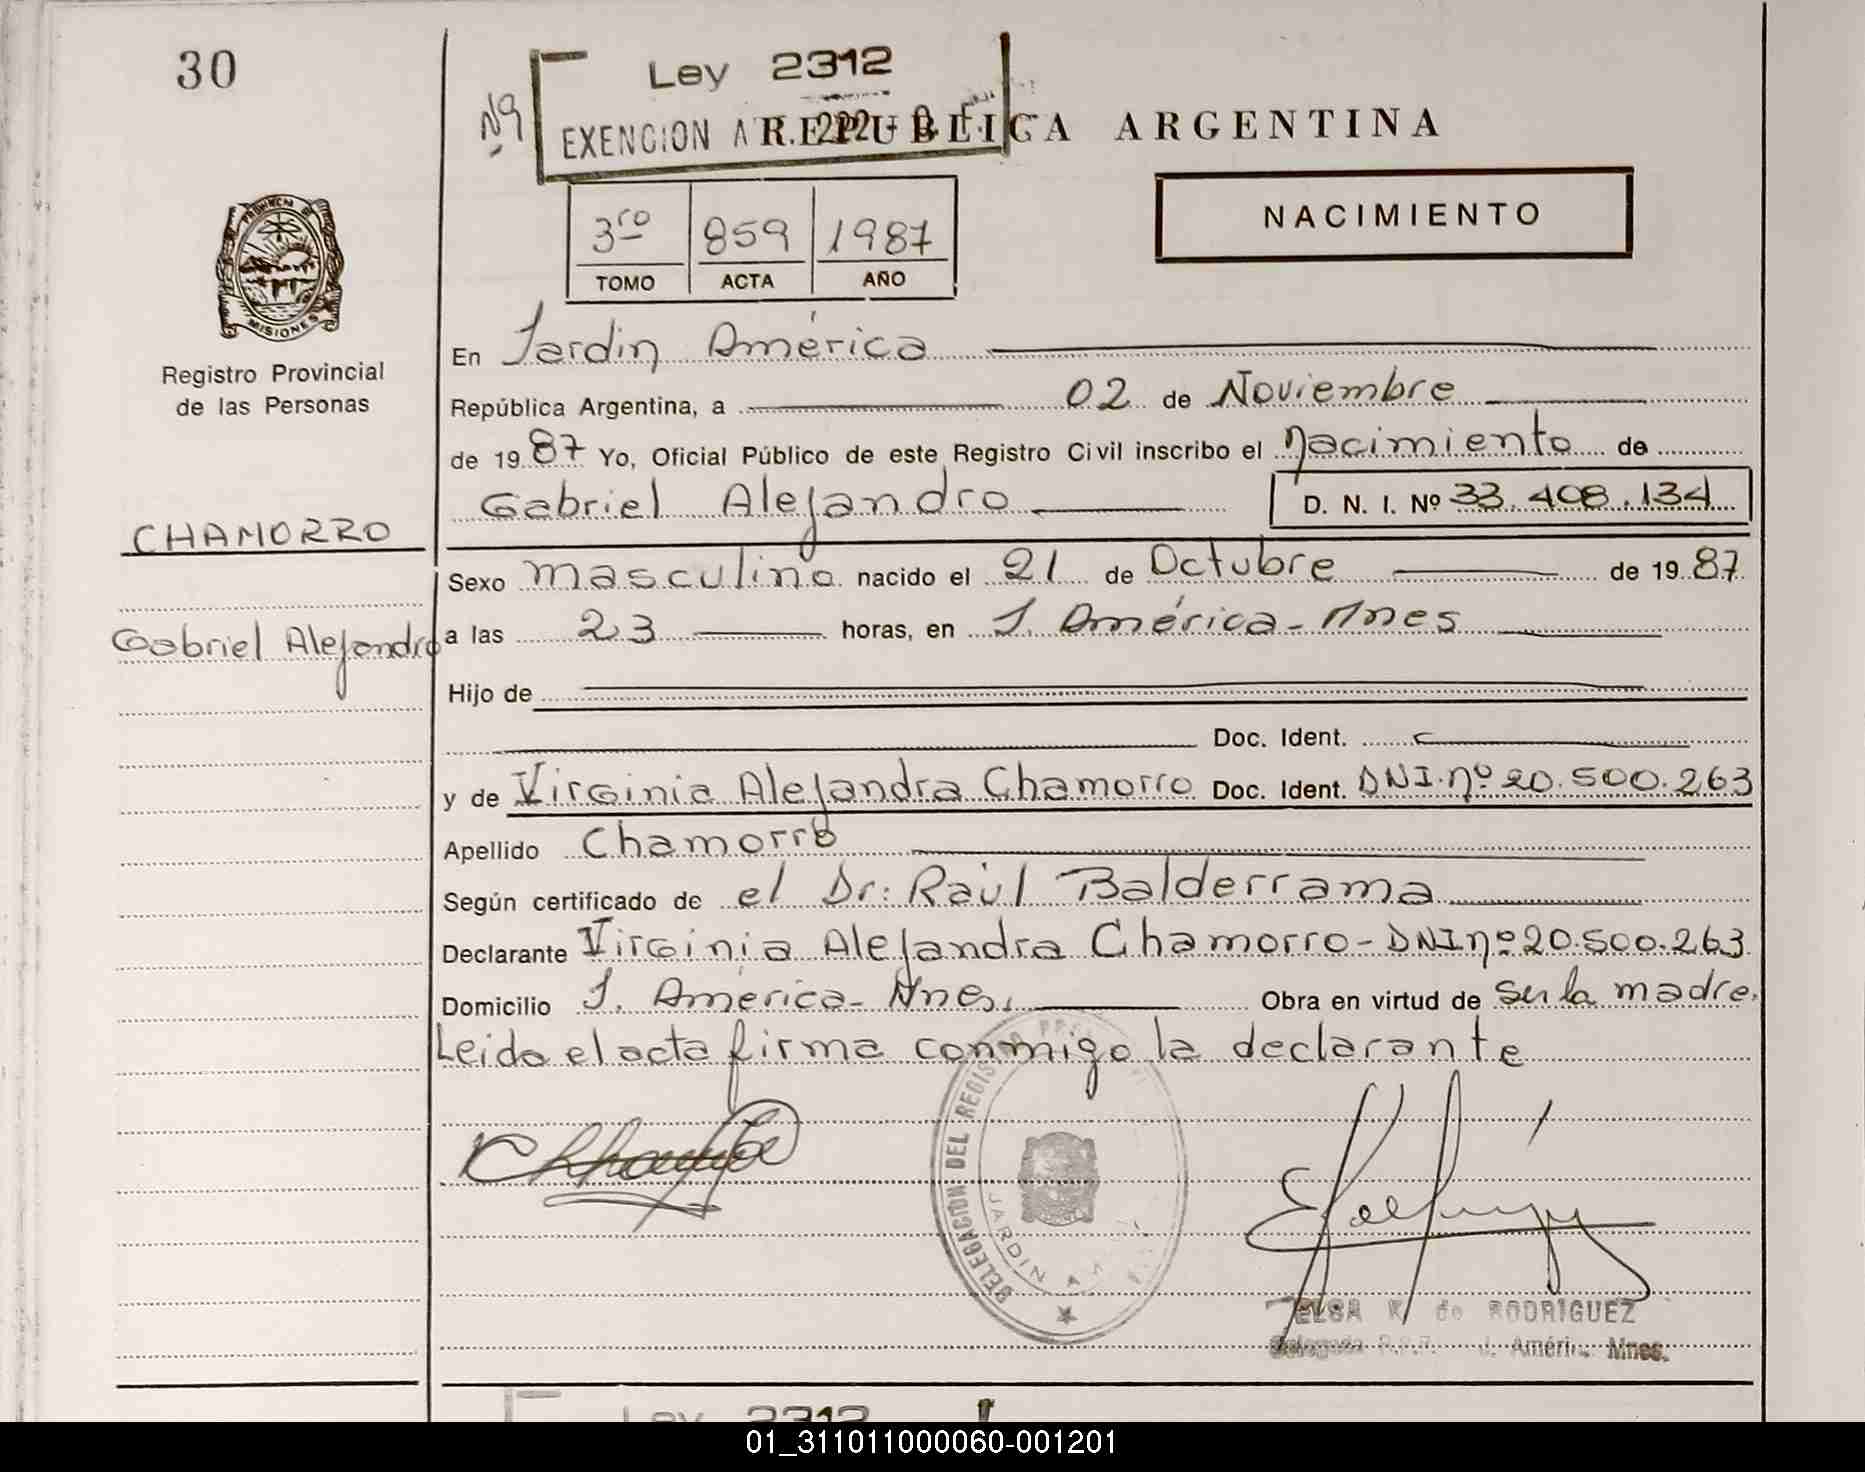 30
Ley 2312
Nº
EXENCION A
REPUBLICA ARGENTINA
NACIMIENTO
3ro 859 1987
TOMO ACTA AÑO
PROVINCIA DE
MISIONES
Registro Provincial
de las Personas
En Jardin América
República Argentina, a 02 de Noviembre
de 1987 Yo, Oficial Público de este Registro Civil inscribo el Nacimiento de
Gabriel Alejandro D. N. I. Nº 33.408.134
CHAMORRO
Gabriel Alejandro
Sexo masculino nacido el 21 de Octubre de 1987
a las 23 horas, en J. América - Mnes
Hijo de
Doc. Ident.
y de Virginia Alejandra Chamorro Doc. Ident. DNI.nº 20.500.263
Apellido Chamorro
Según certificado de el Dr: Raúl Balderrama
Declarante Virginia Alejandra Chamorro - DNI nº 20.500.263
Domicilio J. América - Mnes. Obra en virtud de ser la madre.
Leida el acta firma conmigo la declarante
DELEGACION DEL REGISTRO
JARDIN
ELSA K. de RODRIGUEZ
Delegada R.P.P. J. Améri Mnes.
Ley 2312
01_311011000060-001201